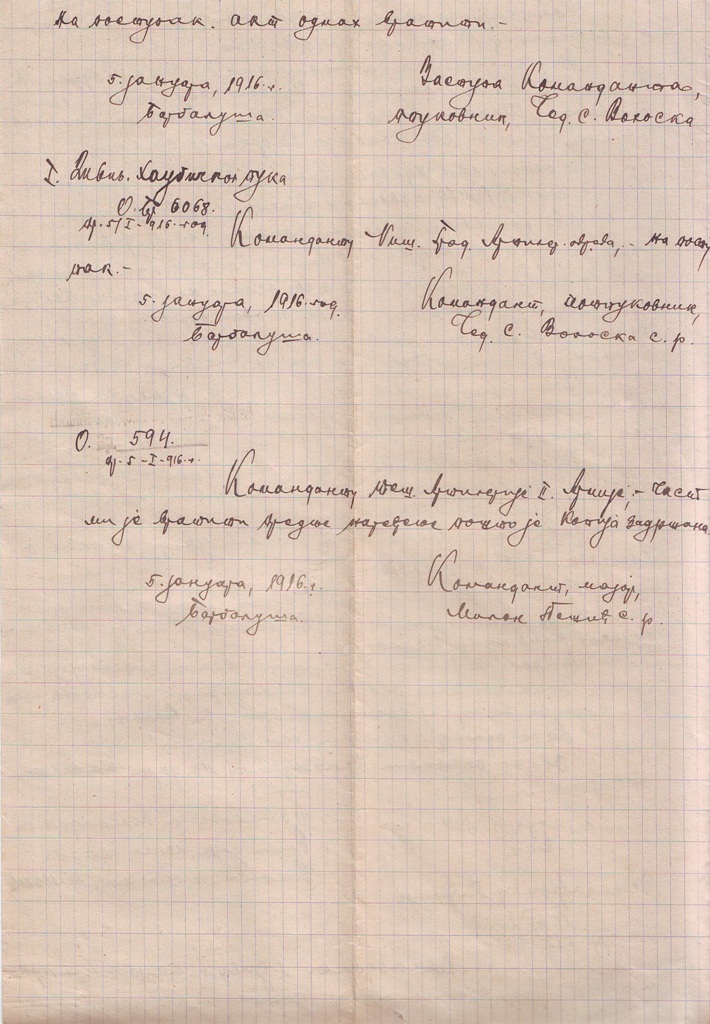 на поступак. акт одмах вратити.-
5. јануара, 1916.г.
Барбалуша.
Заступа Команданта,
пуковник, Чед. С. Волоска
I. Хаубички пука
О. Бр 6068.
бр. 5/I-916. год.
Команданту Град. Артилер. -на посту
пак.-
5. јануара, 1916. год.
Барбалуша.
Командант, потпуковник,
Чед. С. Волоска с. р.
О. 594.
бр. 5-I-916.г.
Команданту Артилерије II. Армије,- Част
ми је вратити предње наређење пошто је копија задржана.
5. јануара, 1916.г.
Барбалуша.
Командант, мајор,
Милан Пешић с. р.